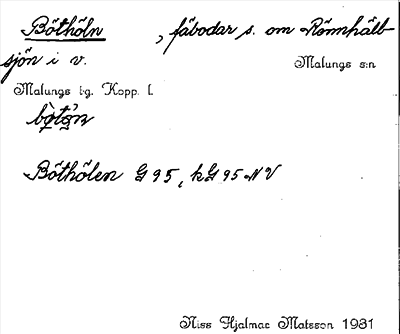 Böthöln , fäbodar s. om Römhälb-
sjön i v.
Malungs s:n
Malungs tg. Kopp. l.
Böthölen G 95, kG 95 NV
Niss Hjalmar Matsson 1931